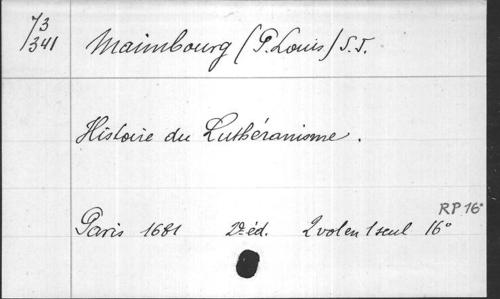 73
/341
Maimbourg (P. Louis) S.J.
Histoire du Luthéranisme.
RP 16°
Paris 1681 2e éd. 2 vol en 1 seul 16°